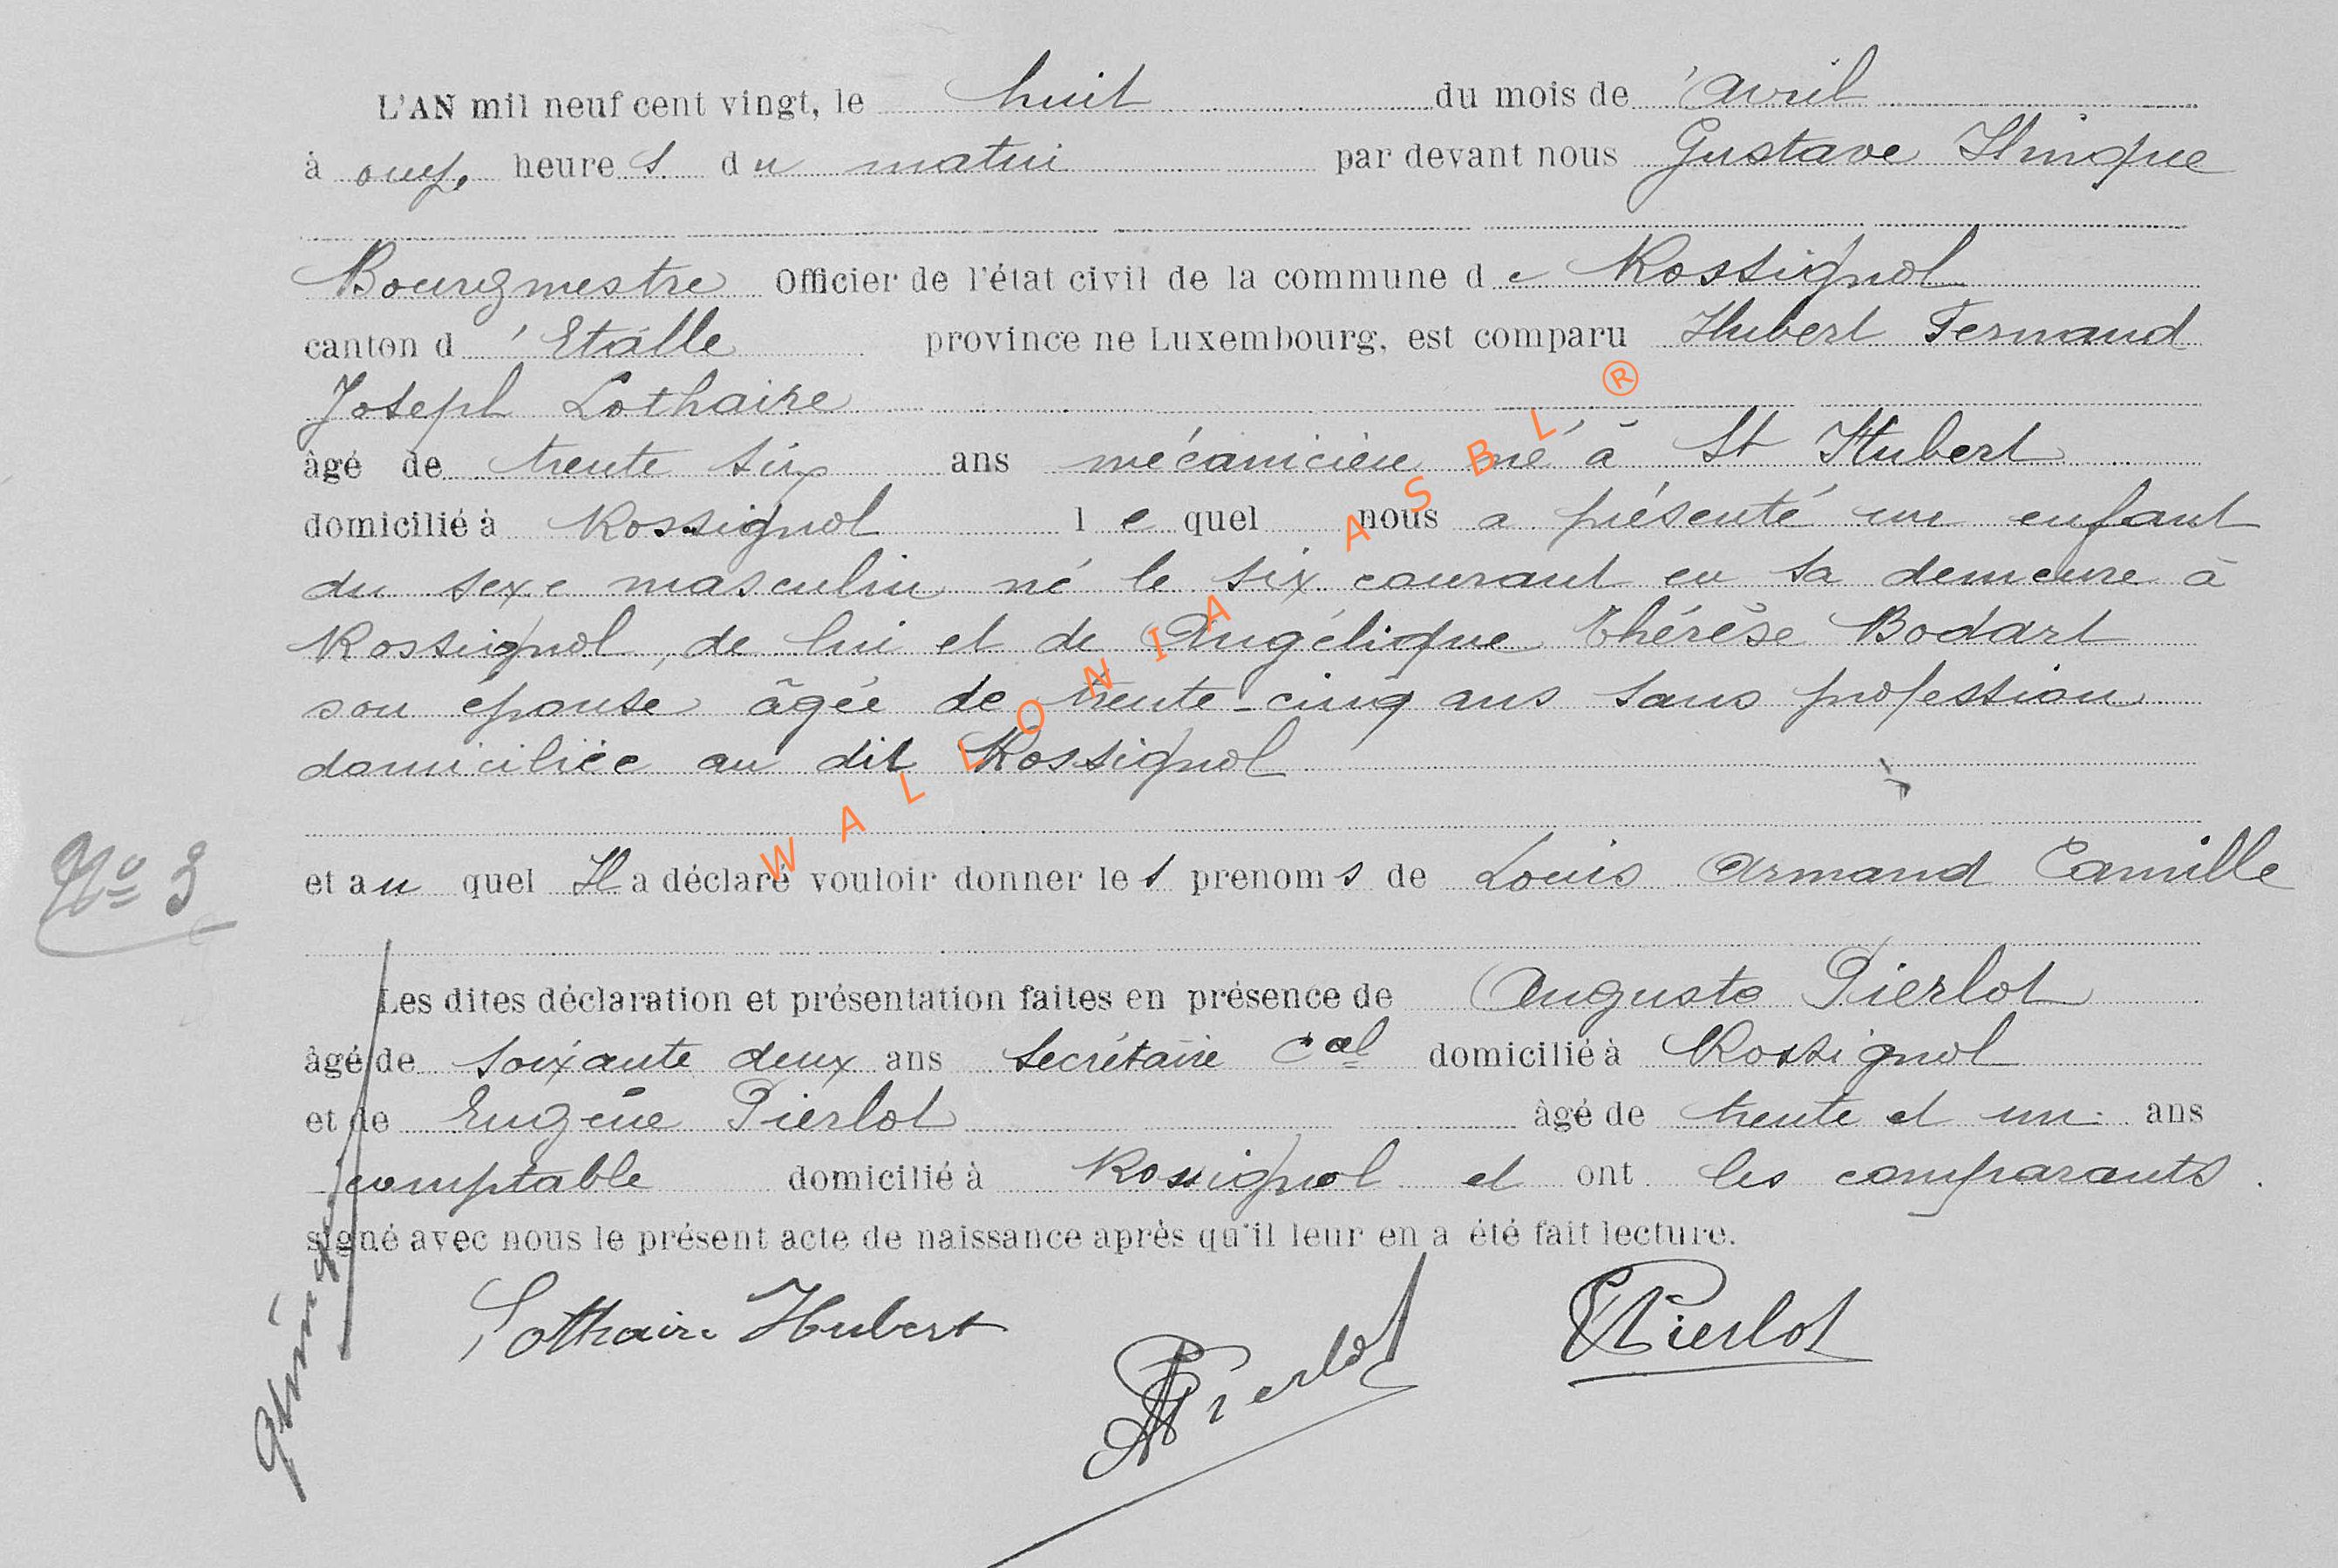 L'AN mil neuf cent vingt, le huit du mois de avril
à onze heure s du matin par devant nous Gustave Hinque
Bourgmestre Officier de l'état civil de la commune de Rossignol
canton d'Etalle province ne Luxembourg, est comparu Hubert Fernand
Joseph Lothaire
âgé de trente six ans mécanicien né à St Hubert
domicilié à Rossignol le quel nous a présenté un enfant
du sexe masculin né le six courant en sa demeure à
Rossignol, de lui et de Angélique Thérèse Bodart
son épouse âgée de trente-cinq ans sans profession
domiciliée au dit Rossignol
No 3
et au quel Il a déclaré vouloir donner les prenoms de Louis Armand Camille
Les dites déclaration et présentation faites en présence de Auguste Pierlot
âgé de soixante deux ans secrétaire cal domicilié à Rossignol
et de Eugène Pierlot âgé de trente et un ans
comptable domicilié à Rossignol et ont les comparants
signé avec nous le présent acte de naissance après qu'il leur en a été fait lecture.
Lothaire Hubert
APierlot
EPierlot
WALLONIA ASBL ®